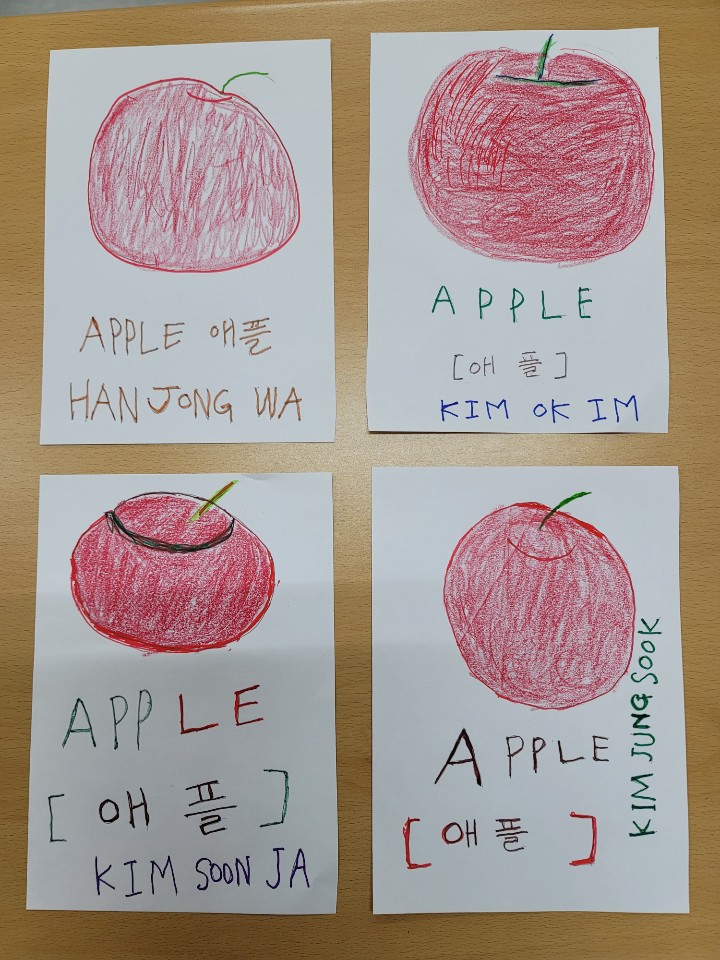 APPLE 애플
HAN JONG WA
APPLE
[애플]
KIM OK IM
APPLE
[애플]
KIM SOON JA
APPLE
[애플]
KIM JUNG SOOK